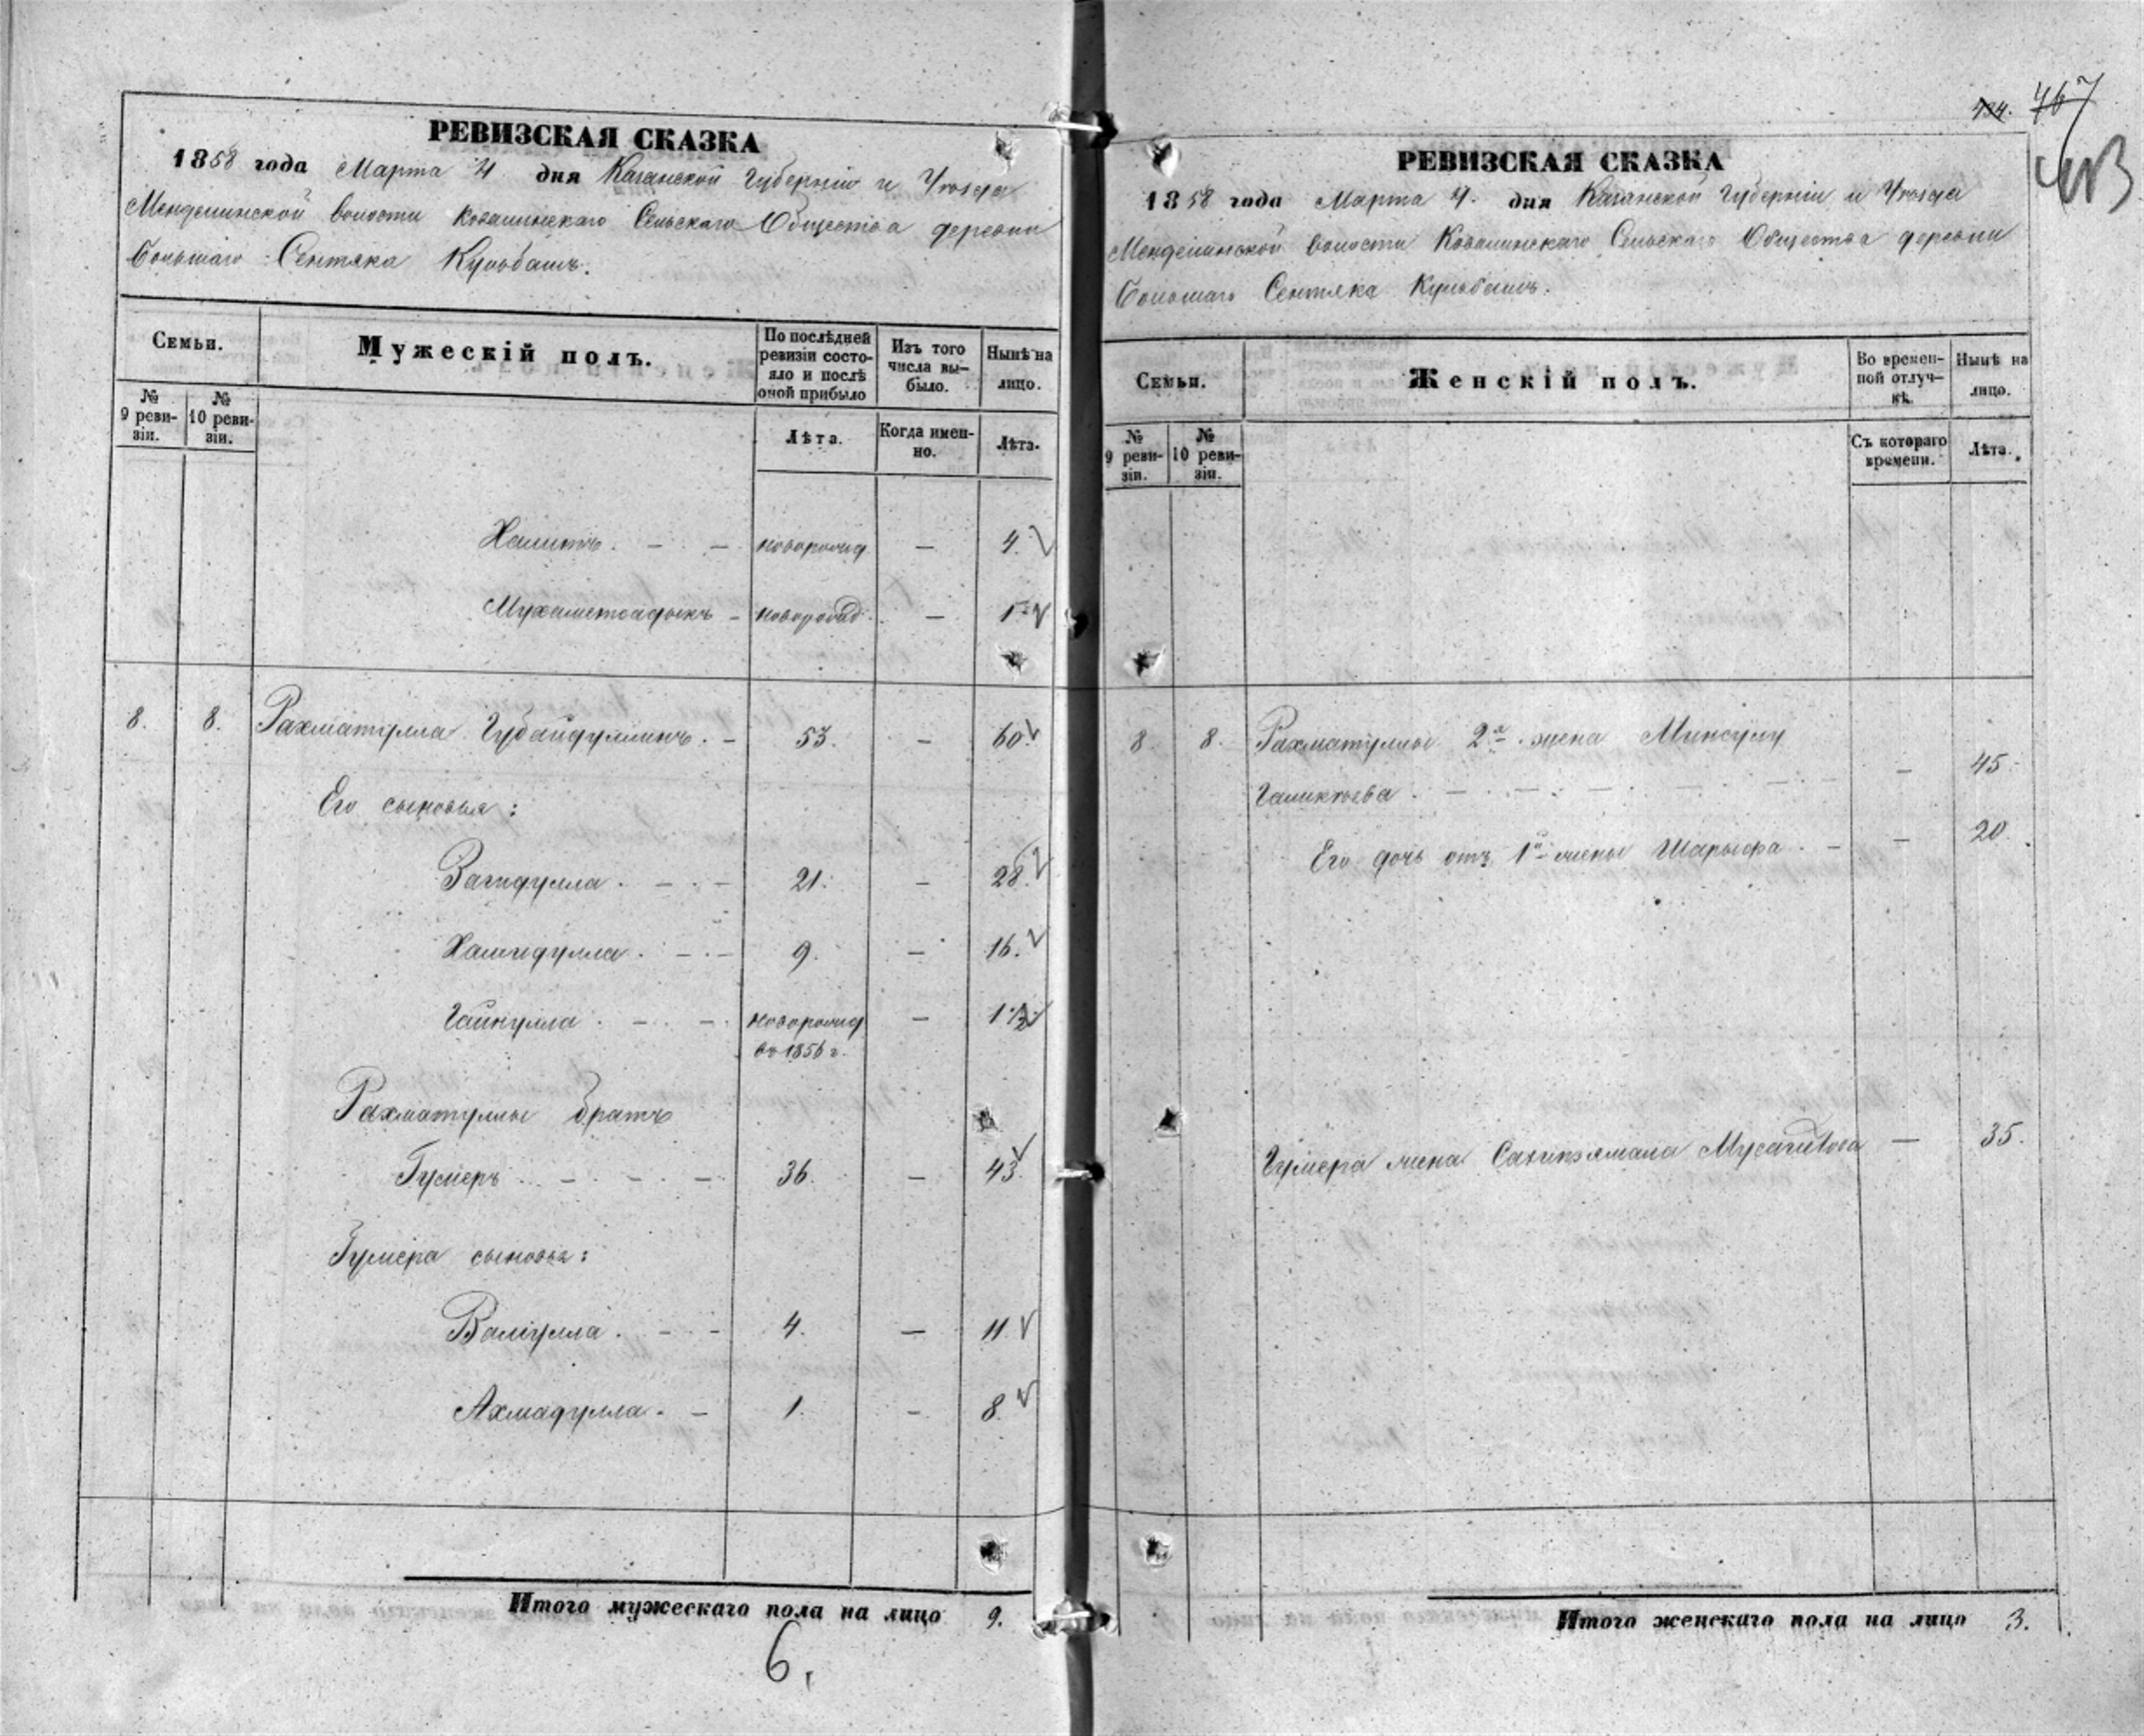 РЕВИЗСКАЯ СКАЗКА
1858 года Марта 4 дня Казанской Губерніи и Уѣзда
Менделинской волости Ковалинскаго Сельскаго Общества деревни
большаго Сентяка Кульбашъ.
Семьи.
Мужескій полъ.
По послѣдней ревизіи состояло и послѣ оной прибыло
Изъ того числа выбыло.
Нынѣ на лицо.
№ 9 ревизіи.
№ 10 ревизіи.
Лѣта.
Когда именно.
Лѣта.
Хамитъ. — — новорожд — 4.
Мухаметсадыкъ — новорожд. —
8. 8. Рахматулла Губайдуллинъ. — 53. — 60.
Его сыновья:
Загидулла. — — 21. — 28.
Хамидулла. — — 9. — 16.
Гайнулла. — — новорожд — 1 1/2
въ 1856 г.
Рахматуллы братъ
Гумеръ — — — 36. — 43.
Гумера сыновья:
Валіулла. — — 4. — 11.
Ахмадулла. — 1. — 8.
Итого мужескаго пола на лицо 9.
6.
434. 467
РЕВИЗСКАЯ СКАЗКА
1858 года Марта 4. дня Казанской Губерніи и Уѣзда
Менделинской волости Ковалинскаго Сельскаго Общества деревни
большаго Сентяка Кульбашъ.
Семьи.
Женскій полъ.
Во временной отлучкѣ.
Нынѣ на лицо.
№ 9 ревизіи.
№ 10 ревизіи.
Съ котораго времени.
Лѣта.
8. 8. Рахматуллы 2я жена Минсулу
Галикѣева. — — — — — 45.
Его дочь отъ 1й жены Шарыфа. — — 20.
Гумера жена Сагипзямала Мусагитова — 35.
Итого женскаго пола на лицо 3.